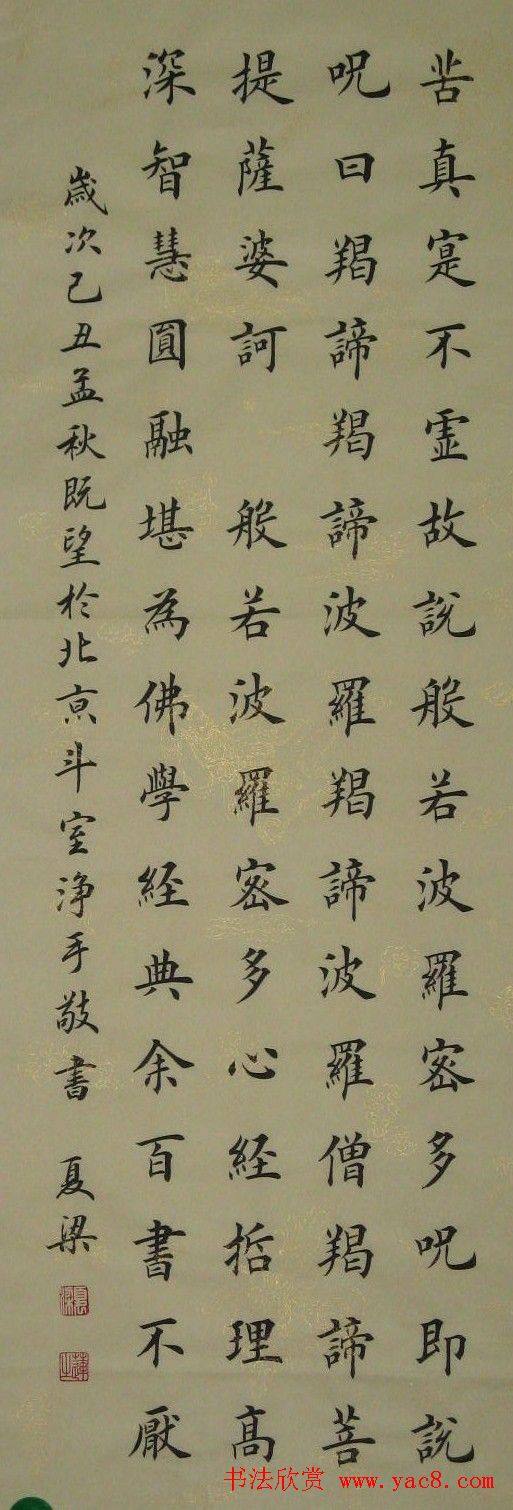 苦真寔不虛故說般若波羅密多呪即說
呪曰羯諦羯諦波羅羯諦波羅僧羯諦菩
提薩婆訶 般若波羅密多心経哲理高
深智慧圓融堪為佛學経典余百書不厭
歲次己丑孟秋既望於北京斗室淨手敬書 夏梁
书法欣赏 www.yac8.com